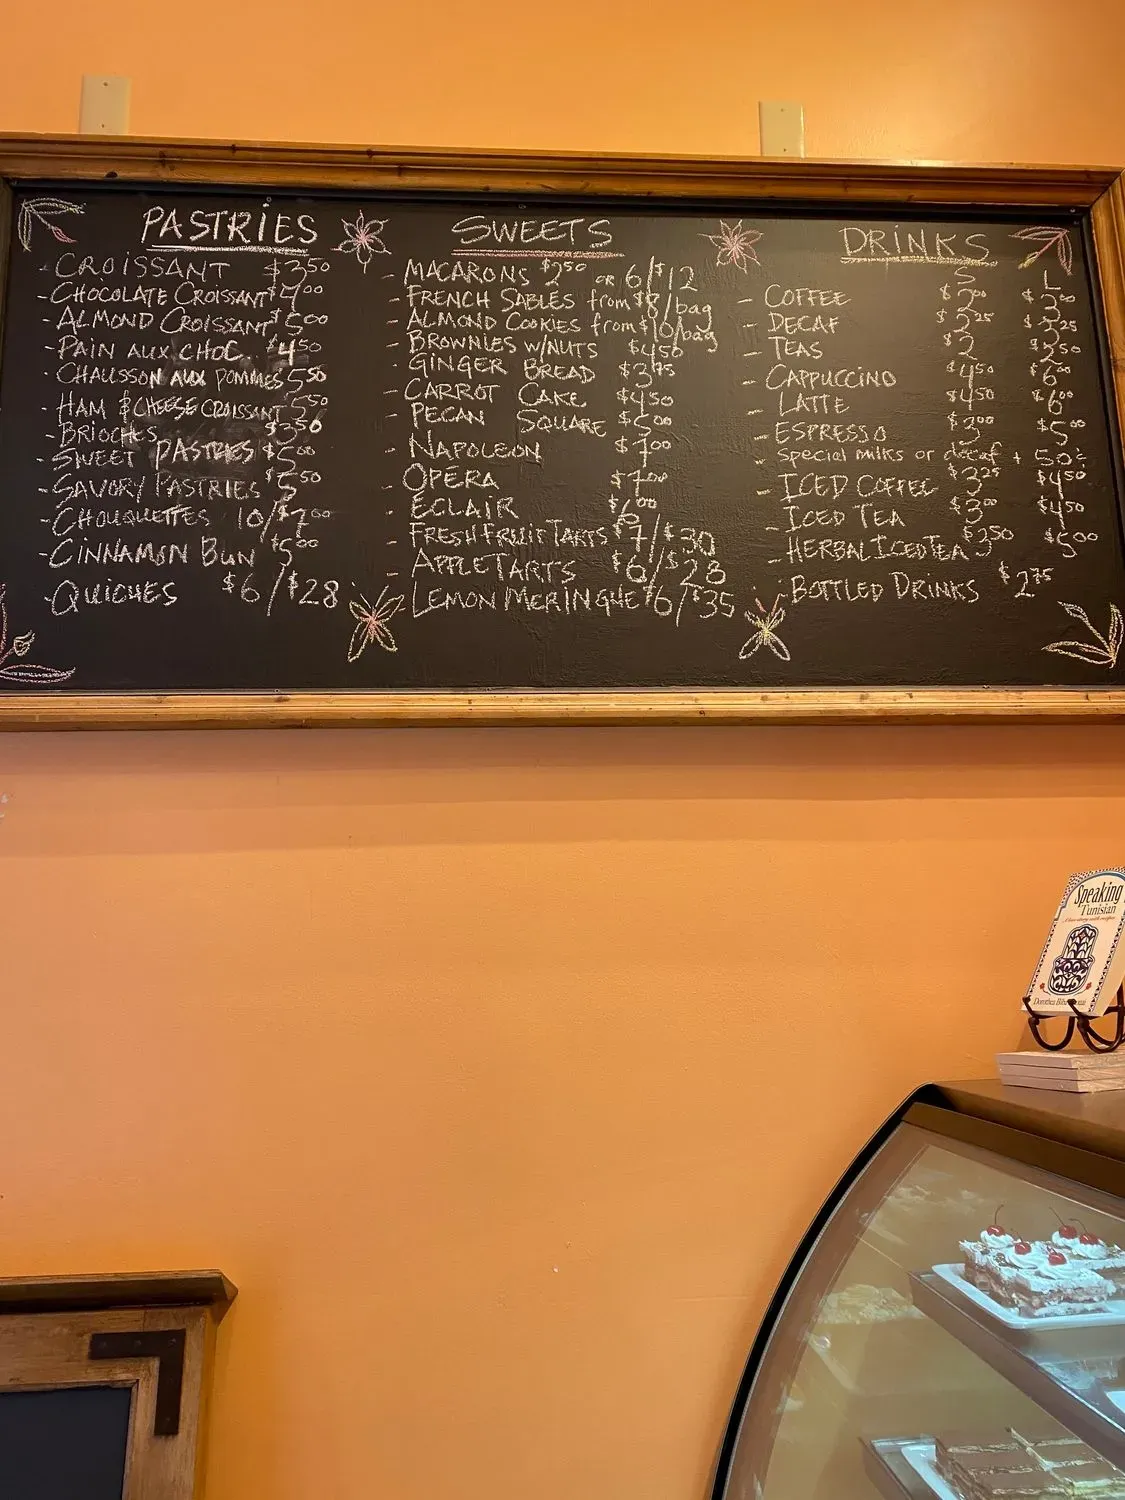 PASTRIES
- CROISSANT $3.50
- CHOCOLATE CROISSANT $4.00
- ALMOND CROISSANT $5.00
- PAIN AUX CHOC. $4.50
- CHAUSSON AUX POMMES 5.50
- HAM & CHEESE CROISSANT 5.50
- BRIOCHES $3.50
- SWEET PASTRIES $5.00
- SAVORY PASTRIES $5.50
- CHOUQUETTES 10/$7.00
- CINNAMON BUN $5.00
- QUICHES $6/$28
SWEETS
- MACARONS $2.50 OR 6/$12
- FRENCH SABLES from $8/bag
- ALMOND COOKIES from $10/bag
- BROWNIES W/NUTS $4.50
- GINGER BREAD $3.75
- CARROT CAKE $4.50
- PECAN SQUARE $5.00
- NAPOLEON $7.00
- OPÉRA $7.00
- ECLAIR $6.00
- FRESH FRUIT TARTS $7/$30
- APPLE TARTS $6/$28
- LEMON MERINGUE $6/$35
DRINKS
S L
- COFFEE $2.00 $3.00
- DECAF $2.25 $3.25
- TEAS $2 $2.50
- CAPPUCCINO $4.50 $6.00
- LATTE $4.50 $6.00
- ESPRESSO $3.00 $5.00
- special milks or decaf + 50¢
- ICED COFFEE $3.25 $4.50
- ICED TEA $3.00 $4.50
- HERBAL ICED TEA 3.50 $5.00
- BOTTLED DRINKS $2.75
Speaking
Tunisian
Dorothea